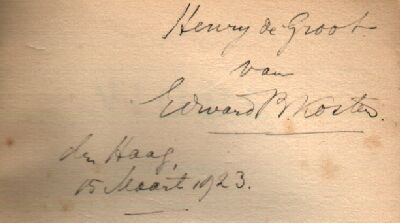 Henry de Groot
van
Edward B Koster.
den Haag,
15 Maart 1923.